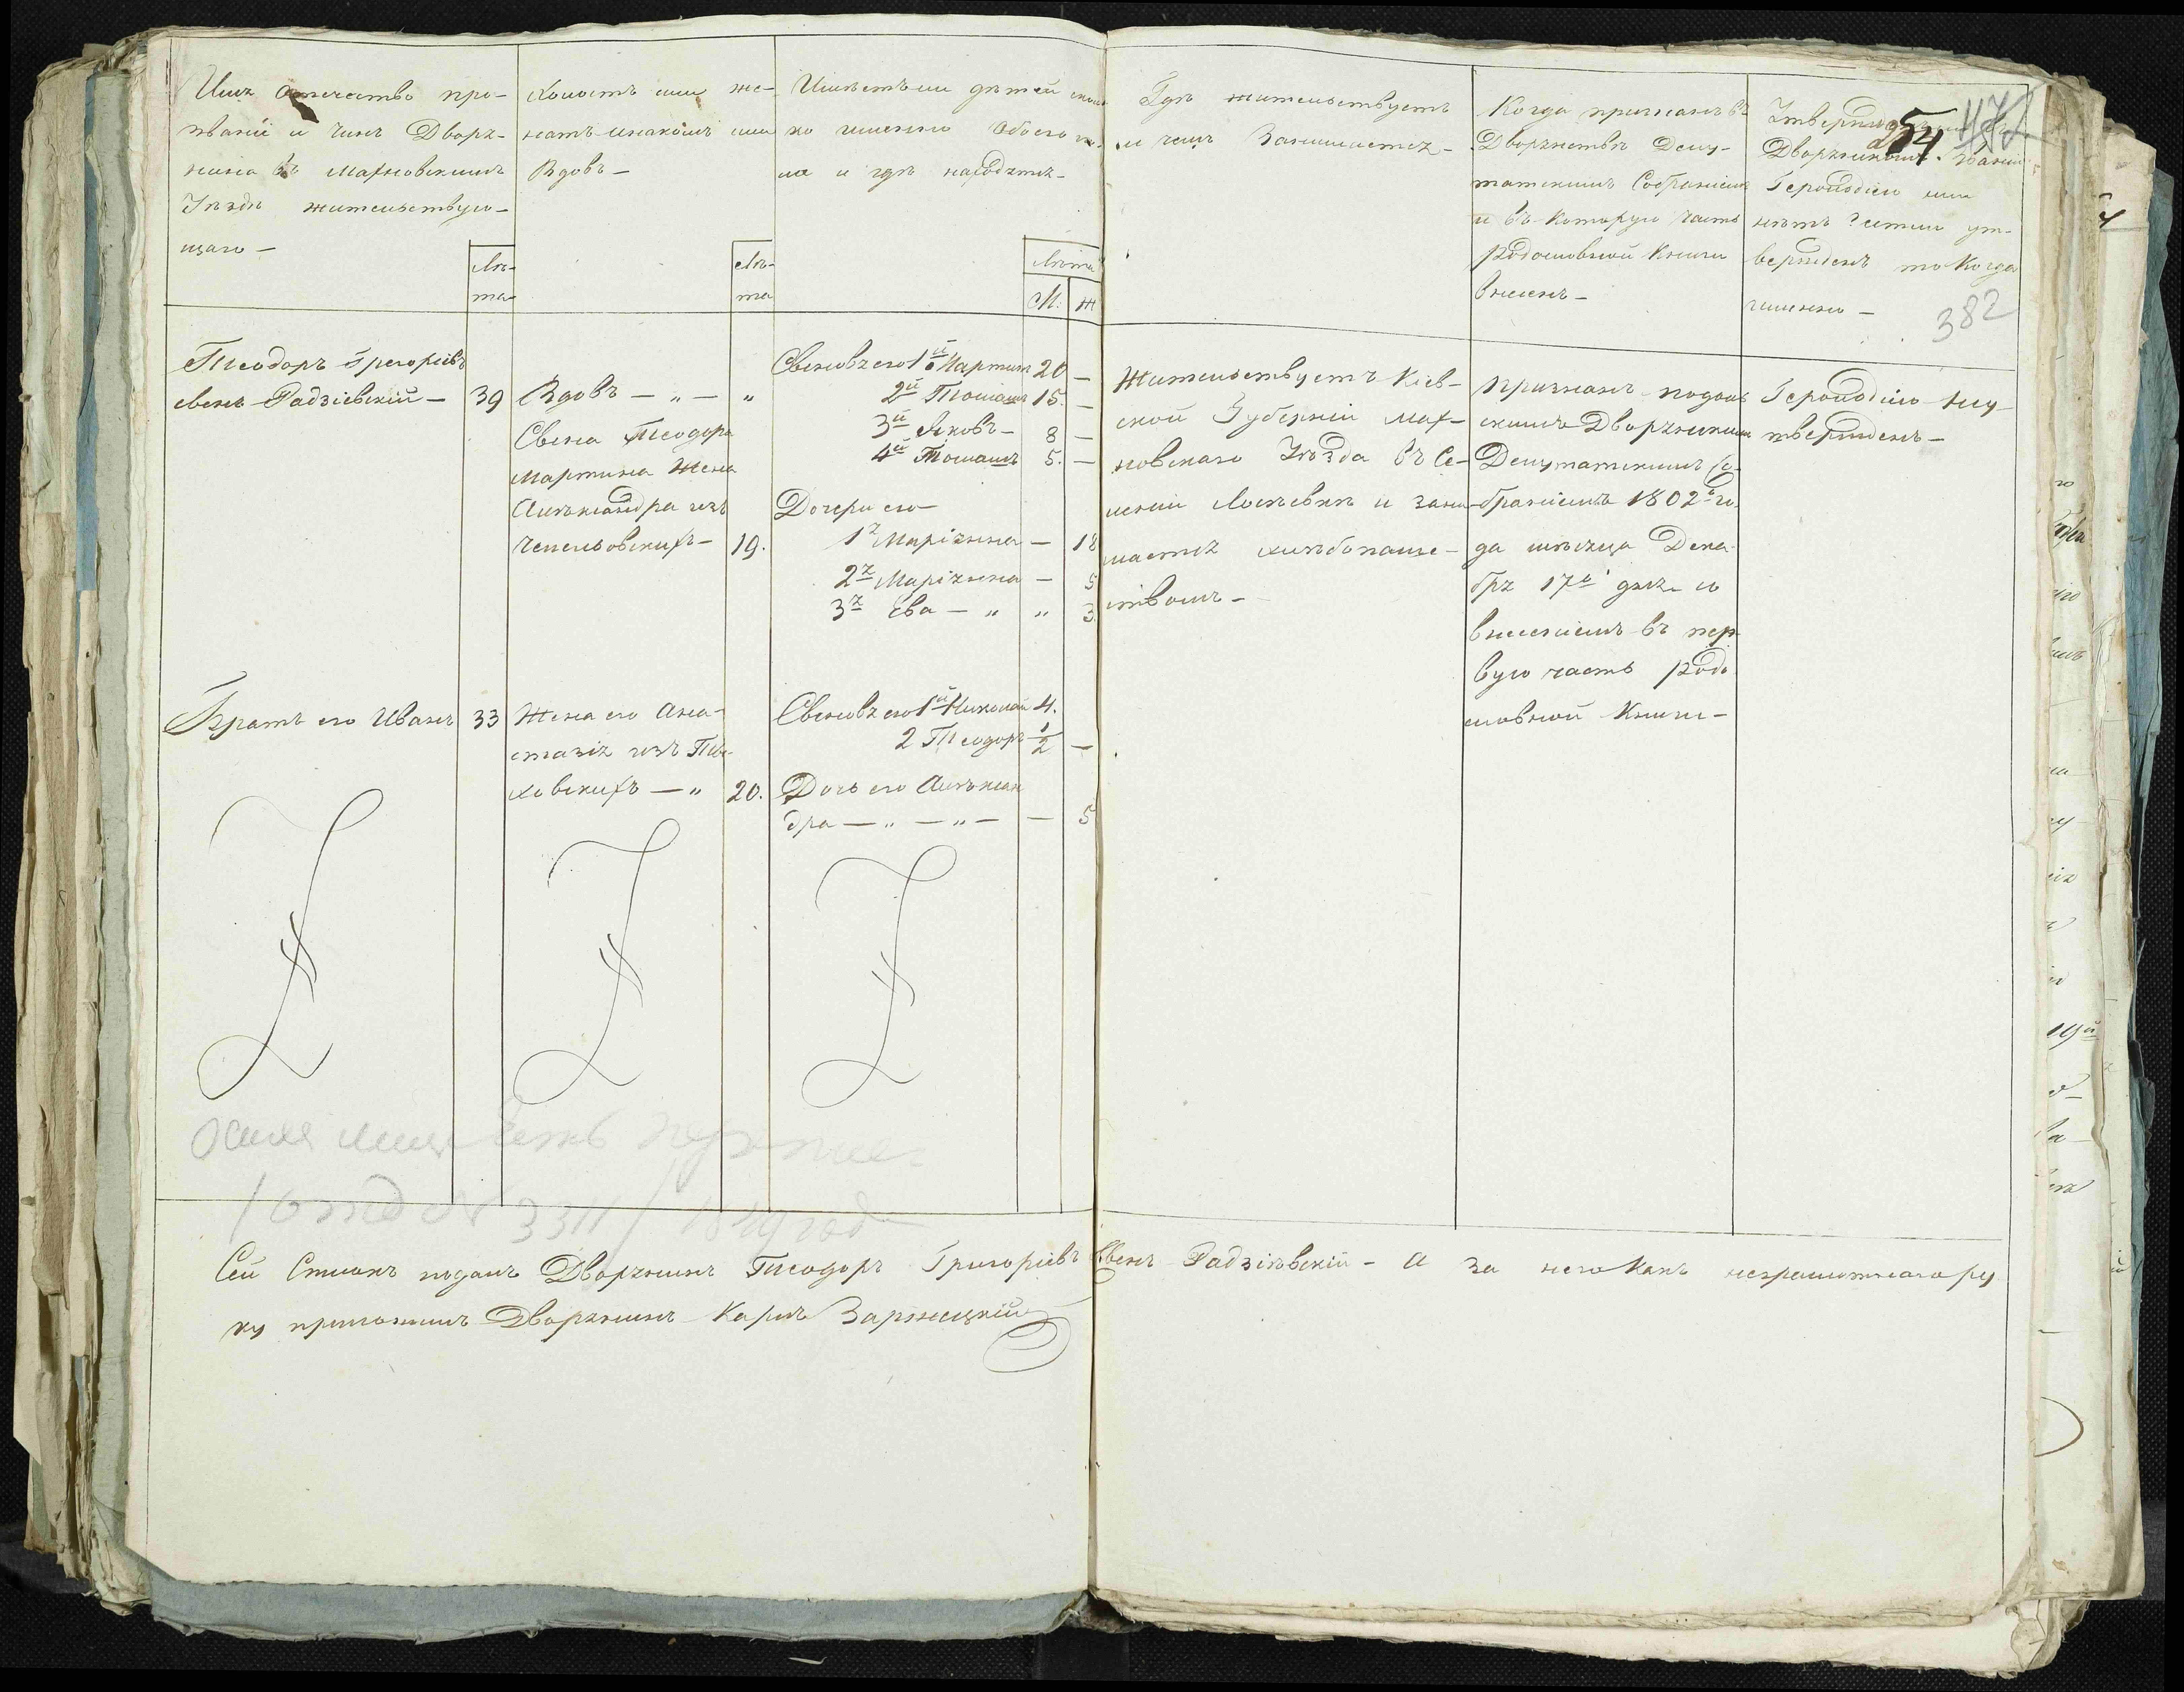 Имя отечество про-
званіе и Чинъ Дворя-
нина въ Махновскимъ
Уездѣ жительствую-
щаго —
Лѣ-
та
Холостъ или же-
натъ на комъ или
Вдовъ —
Лѣ-
та
Имѣетъ ли дѣтей сколь
ко именно Обоего по-
ла и гдѣ находятся —
Лѣта
М. Ж
Гдѣ жительствуетъ
и чемъ Занимается —
Когда признанъ въ
Дворянствѣ Депу-
татскимъ Собраніемъ
и въ Которую часть
Родословной Книги
внесенъ —
Дворянскомъ Званіи
Герольдіею или
нѣтъ? естли ут-
вержденъ то Когда
именно —
54
382
Теодоръ Грегоріевъ
сынъ Радзіевскій — 39
Вдовъ — „ — „
Сына Теодора
Мартина Жена
Алѣксандра изъ
Чепельовскихъ — 19.
Сыновъя его 1й Мартин 20 —
2й Томашъ 15. —
3й Яковъ — 8 —
4й Томашъ 5. —
Дочери его —
1я Маріянна — 18
2я Маріянна — 5
3я Ева — „ „ 3.
Жительствуетъ Кіев-
ской Губерніи Мах-
новскаго Уѣзда въ Се-
леніи Лосѣвкѣ и зани-
мается хлѣбопаше-
ствомъ —
Признанъ Подоль
скимъ Дворянскимъ
Депутатскимъ Со-
браніемъ 1802го го-
да мѣсяца Дека-
бря 17го дня со
внесеніемъ въ пер
вую часть Родо
словной Книги —
Герольдіею Неу-
твержденъ —
Братъ его Иванъ 33
Жена его Ана-
стазія изъ
ховскихъ — „ 20.
Сыновъя его 1й Николай 4.
2 Теодоръ 1/2 —
Дочь его Алѣксан
дра — „ — „ — — 5
3311 / 1849 год
Сей Списокъ подалъ Дворянинъ Теодоръ Григоріевъ Сынъ Радзіѣвскій — а за него Какъ неграмотнаго ру
ку приложилъ Дворянинъ Карлъ Заржицкій